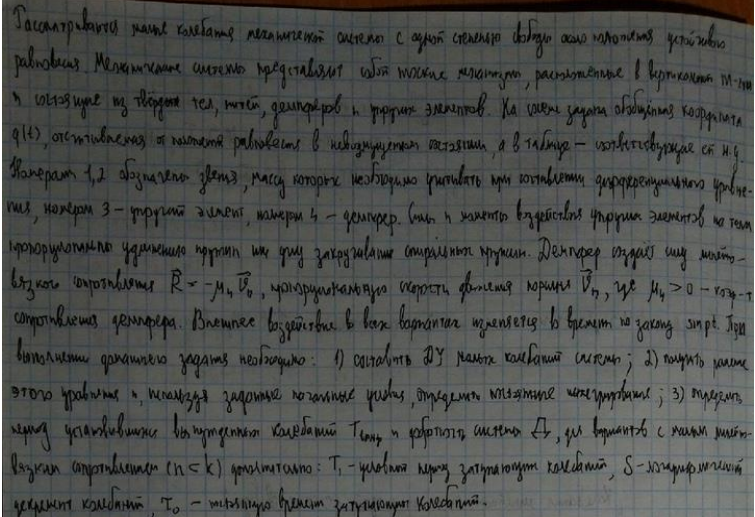 Рассматриваются малые колебания механической системы с одной степенью свободы около положения устойчивого
равновесия. Механические системы представляют собой плоские механизмы, расположенные в вертикальной пл-сти
и состоящие из твёрдых тел, нитей, демпферов и упругих элементов. На схеме задана обобщённая координата
q(t), отсчитываемая от положения равновесия в невозмущённом состоянии, а в таблице – соответствующие ей н.у
Номерами 1,2 обозначены звенья, массу которых необходимо учитывать при составлении дифференциального уравне-
ния, номером 3 – упругий элемент, номером 4 – демпфер. Силы и моменты воздействия упругих элементов на тела
пропорциональны удлинению пружин или углу закручивания спиральных пружин. Демпфер создаёт силу линейно-
вязкого сопротивления R̄ = -μ₄ V̄ₙ, пропорциональную скорости движения поршня V̄ₙ, где μ₄ > 0 – коэф-т
сопротивления демпфера. Внешнее воздействие во всех вариантах изменяется во времени по закону sin pt. При
выполнении домашнего задания необходимо: 1) составить ДУ малых колебаний системы; 2) получить решение
этого уравнения и, используя заданные начальные условия, определить постоянные интегрирования; 3) определить
период установившихся вынужденных колебаний и добротность системы Д, для вариантов с малым линейно-
вязким сопротивлением (n < k) дополнительно: T₁ – условный период затухающих колебаний, δ – логарифмический
декремент колебаний, τ₀ – постоянную времени затухающих колебаний.